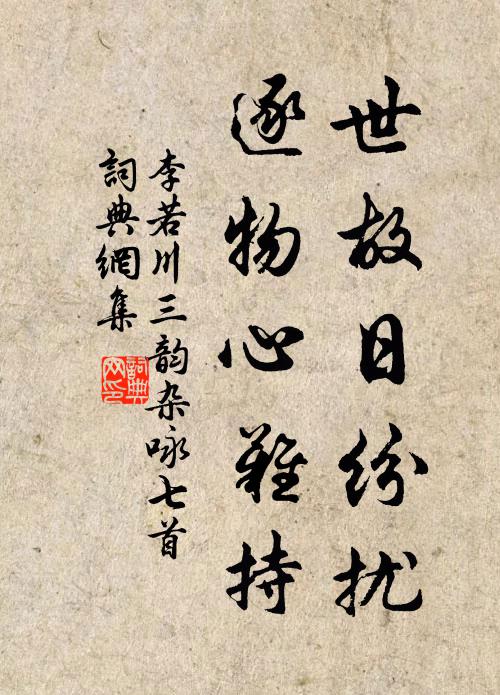 世故日纷扰
逐物心难持
李若川三韵杂咏七首
詞典網集
詞典网印